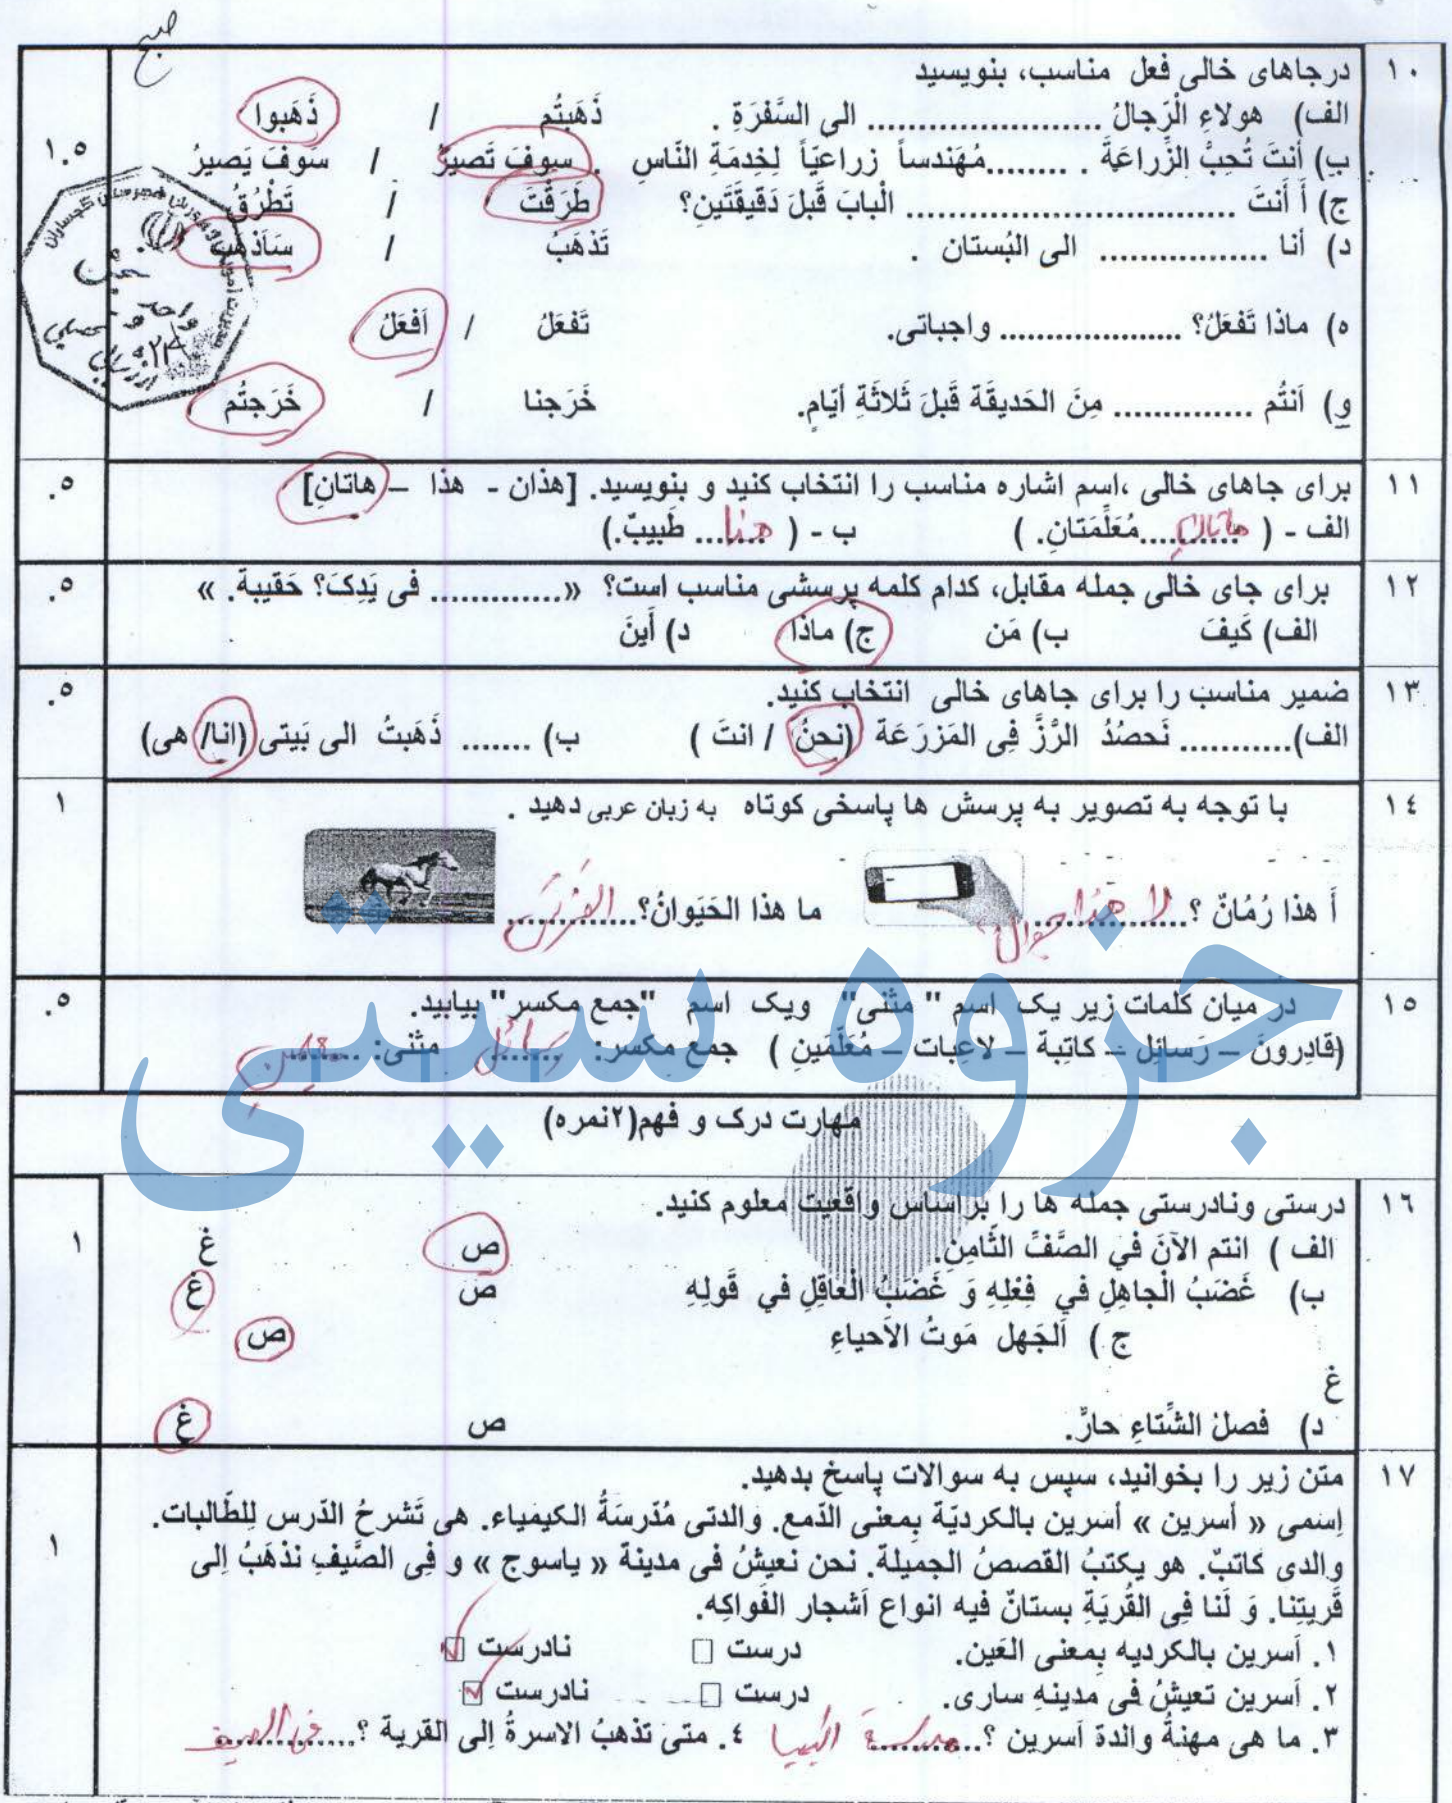 صبح
١٠ درجاهای خالی فعل مناسب، بنویسید
الف) هولاءِ الْرَجالُ ...................... الی السَّفرَةِ . ذَهَبتُم / ذَهَبوا ١.٥
ب) أنتَ تُحِبُّ الزِّراعَةَ . ........مُهَندساً زراعيّاً لِخِدمَةِ النّاسِ . سوفَ تَصيرُ / سَوفَ يَصيرُ
ج) أ أنتَ ............................... الْبابَ قَبلَ دَقيقَتَينِ؟ طَرَقْتَ / تَطْرُقُ
د) أنا ................. الی البُستان . تَذهَبُ / سَأذْهَبُ
ه) ماذا تَفعَلُ؟ .................. واجباتی. تَفعَلُ / اَفعَلُ
و) اَنتُم .............. مِنَ الحَديقَة قَبلَ ثَلاثَةِ ايّامٍ. خَرَجنا / خَرَجتُم
١١ برای جاهای خالی ،اسم اشاره مناسب را انتخاب کنید و بنویسید. [هذان - هذا – هاتانِ] ٥.
الف - ( هاتانِ مُعَلِّمَتانِ. ) ب - ( هذا طَبيبٌ.)
١٢ برای جای خالی جمله مقابل، کدام کلمه پرسشی مناسب است؟ «............. فی یَدِکَ؟ حَقیبة. » ٥.
الف) کَیفَ ب) مَن ج) ماذا د) أینَ
١٣ ضمیر مناسب را برای جاهای خالی انتخاب کنید. ٥.
الف)........... نَحصُدُ الرُّزَّ فِی المَزرَعَة (نحنُ / انتَ ) ب) ....... ذَهَبتُ الی بَیتی (انا/ هی)
١٤ با توجه به تصویر به پرسش ها پاسخی کوتاه به زبان عربی دهید . ١
أ هذا رُمّانٌ ؟ لا هذا جوال ما هذا الحَیَوانُ؟ الفَرَس
١٥ در میان کلمات زیر یک اسم "مثنی" ویک اسم "جمع مکسر" بیابید. ٥.
(قادِرونَ – رَسائِل – کاتِبة – لاعِبات – مُعَلِّمَینِ ) جمع مکسر: رسائل مثنی: معلمین
مهارت درک و فهم(٢نمره)
جزوه سیتی
١٦ درستی ونادرستی جمله ها را براساس واقعیت معلوم کنید. ١
الف ) انتم الآنَ في الصَّفِّ الثّامِنِ. ص غ
ب) غَضَبُ الْجاهِلِ في فِعْلِهِ وَ غَضَبُ الْعاقِلِ في قَولِهِ ص غ
ج ) اَلجَهل مَوتُ الاَحیاءِ ص
غ
د) فصلُ الشِّتاءِ حارٌّ. ص غ
١٧ متن زیر را بخوانید، سپس به سوالات پاسخ بدهید. ١
اِسمی « أسرین » أسرین بالکردیّة بِمعنی الدّمع. والدتی مُدّرسَةُ الکیمیاء. هی تَشرحُ الدّرس لِلطّالبات.
والدی کاتبٌ. هو یکتبُ القصصُ الجمیلة. نحن نعیشُ فی مدینة « یاسوج » و فِی الصَّیفِ نذهَبُ اِلی
قَریتِنا. وَ لَنا فِی القُریَةِ بستانٌ فیه انواع اَشجار الفَواکِه.
١. اَسرین بالکردیه بِمعنی العَین. درست □ نادرست ☑
٢. اَسرین تعیشُ فی مدینهِ ساری. درست □ نادرست ☑
٣. ما هی مهنةُ والدة اَسرین ؟ مدرسة الکیمیا ٤. متی تذهبُ الاسرةُ اِلی القریة ؟ فی الصیف